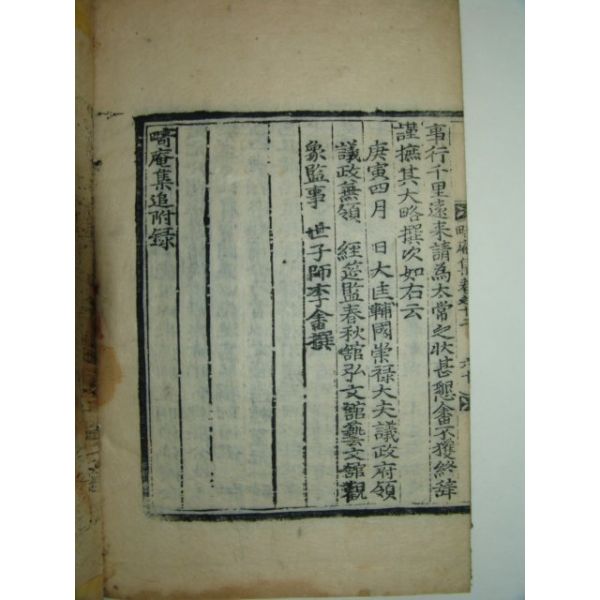 畸庵集卷之十二 六十
事行千里遠來請為太常之狀甚懇畬不獲終辭
謹摭其大略撰次如右云
庚寅四月 日大匡輔國崇祿大夫議政府領
議政兼領 經筵監春秋館弘文館藝文館觀
象監事 世子師李畬撰
畸庵集追附錄